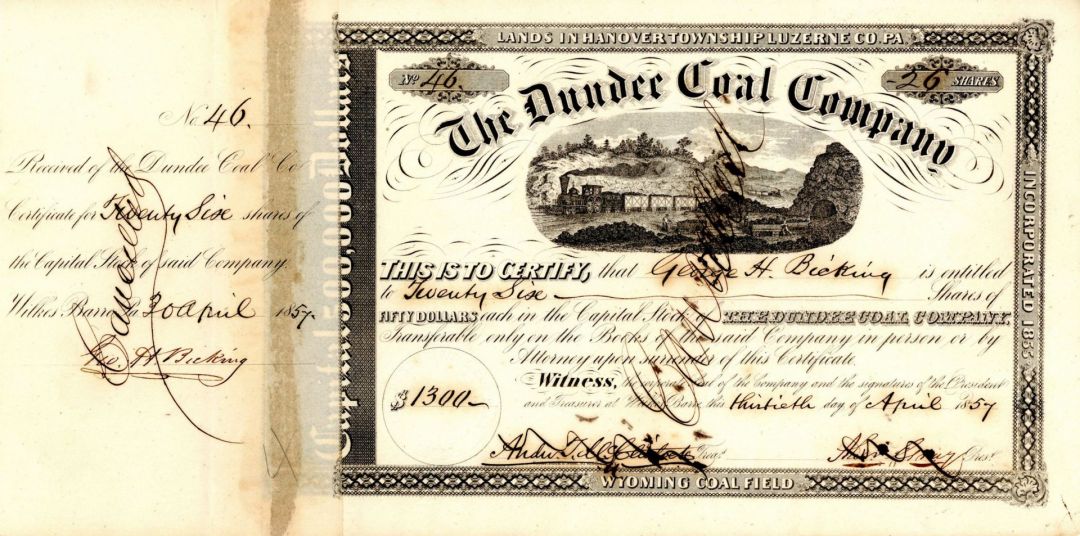 No. 46.
Received of the Dundee Coal Co
Certificate for Twenty Six shares of
the Capital Stock of said Company.
Wilkes Barre 30 April 1857.
Geo. H. Bicking
Cancelled
Capital 500,000 Dollars
LANDS IN HANOVER TOWNSHIP LUZERNE CO. PA.
No 46.
26 SHARES
The Dundee Coal Company
INCORPORATED 185
THIS IS TO CERTIFY, that George H. Bicking is entitled
to Twenty Six Shares of
FIFTY DOLLARS each in the Capital Stock of THE DUNDEE COAL COMPANY,
Transferable only on the Books of the said Company in person or by
Attorney upon surrender of this Certificate.
Witness, the corporate seal of the Company and the signatures of the President
and Treasurer at Wilkes Barre this thirtieth day of April 1857
$1300
Andw. Treas.
Pres.
Cancelled
WYOMING COAL FIELD